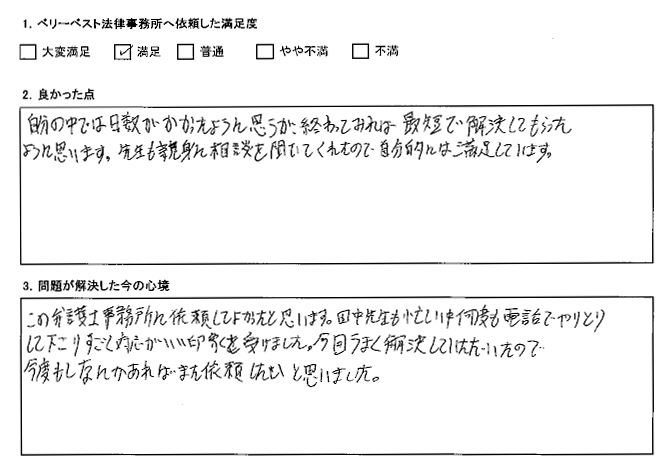 1. ベリーベスト法律事務所へ依頼した満足度
大変満足 満足 普通 やや不満 不満
2. 良かった点
自分の中では日数がかかったように思うが、終わってみれば最短で解決してもらった
ように思います。先生も親身に相談を聞いてくれたので自分的には満足しています。
3. 問題が解決した今の心境
この弁護士事務所に依頼してよかったと思います。田中先生も忙しい中何度も電話でやりとり
して下さりすごく 印象を受けました。今回うまく解決していただいたので
今度もしなんかあればまた依頼したいと思いました。